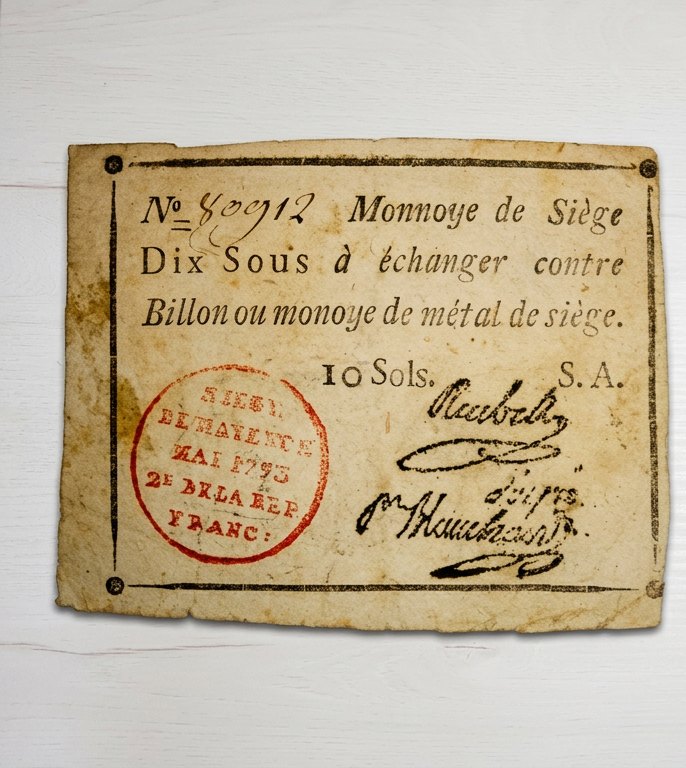 No 80912 Monnoye de Siège
Dix Sous à échanger contre
Billon ou monoye de métal de siège.
10 Sols. S. A.
SIEGE
DE MAYENCE
MAI 1793
2E DE LA REP.
FRANC:
Reubell